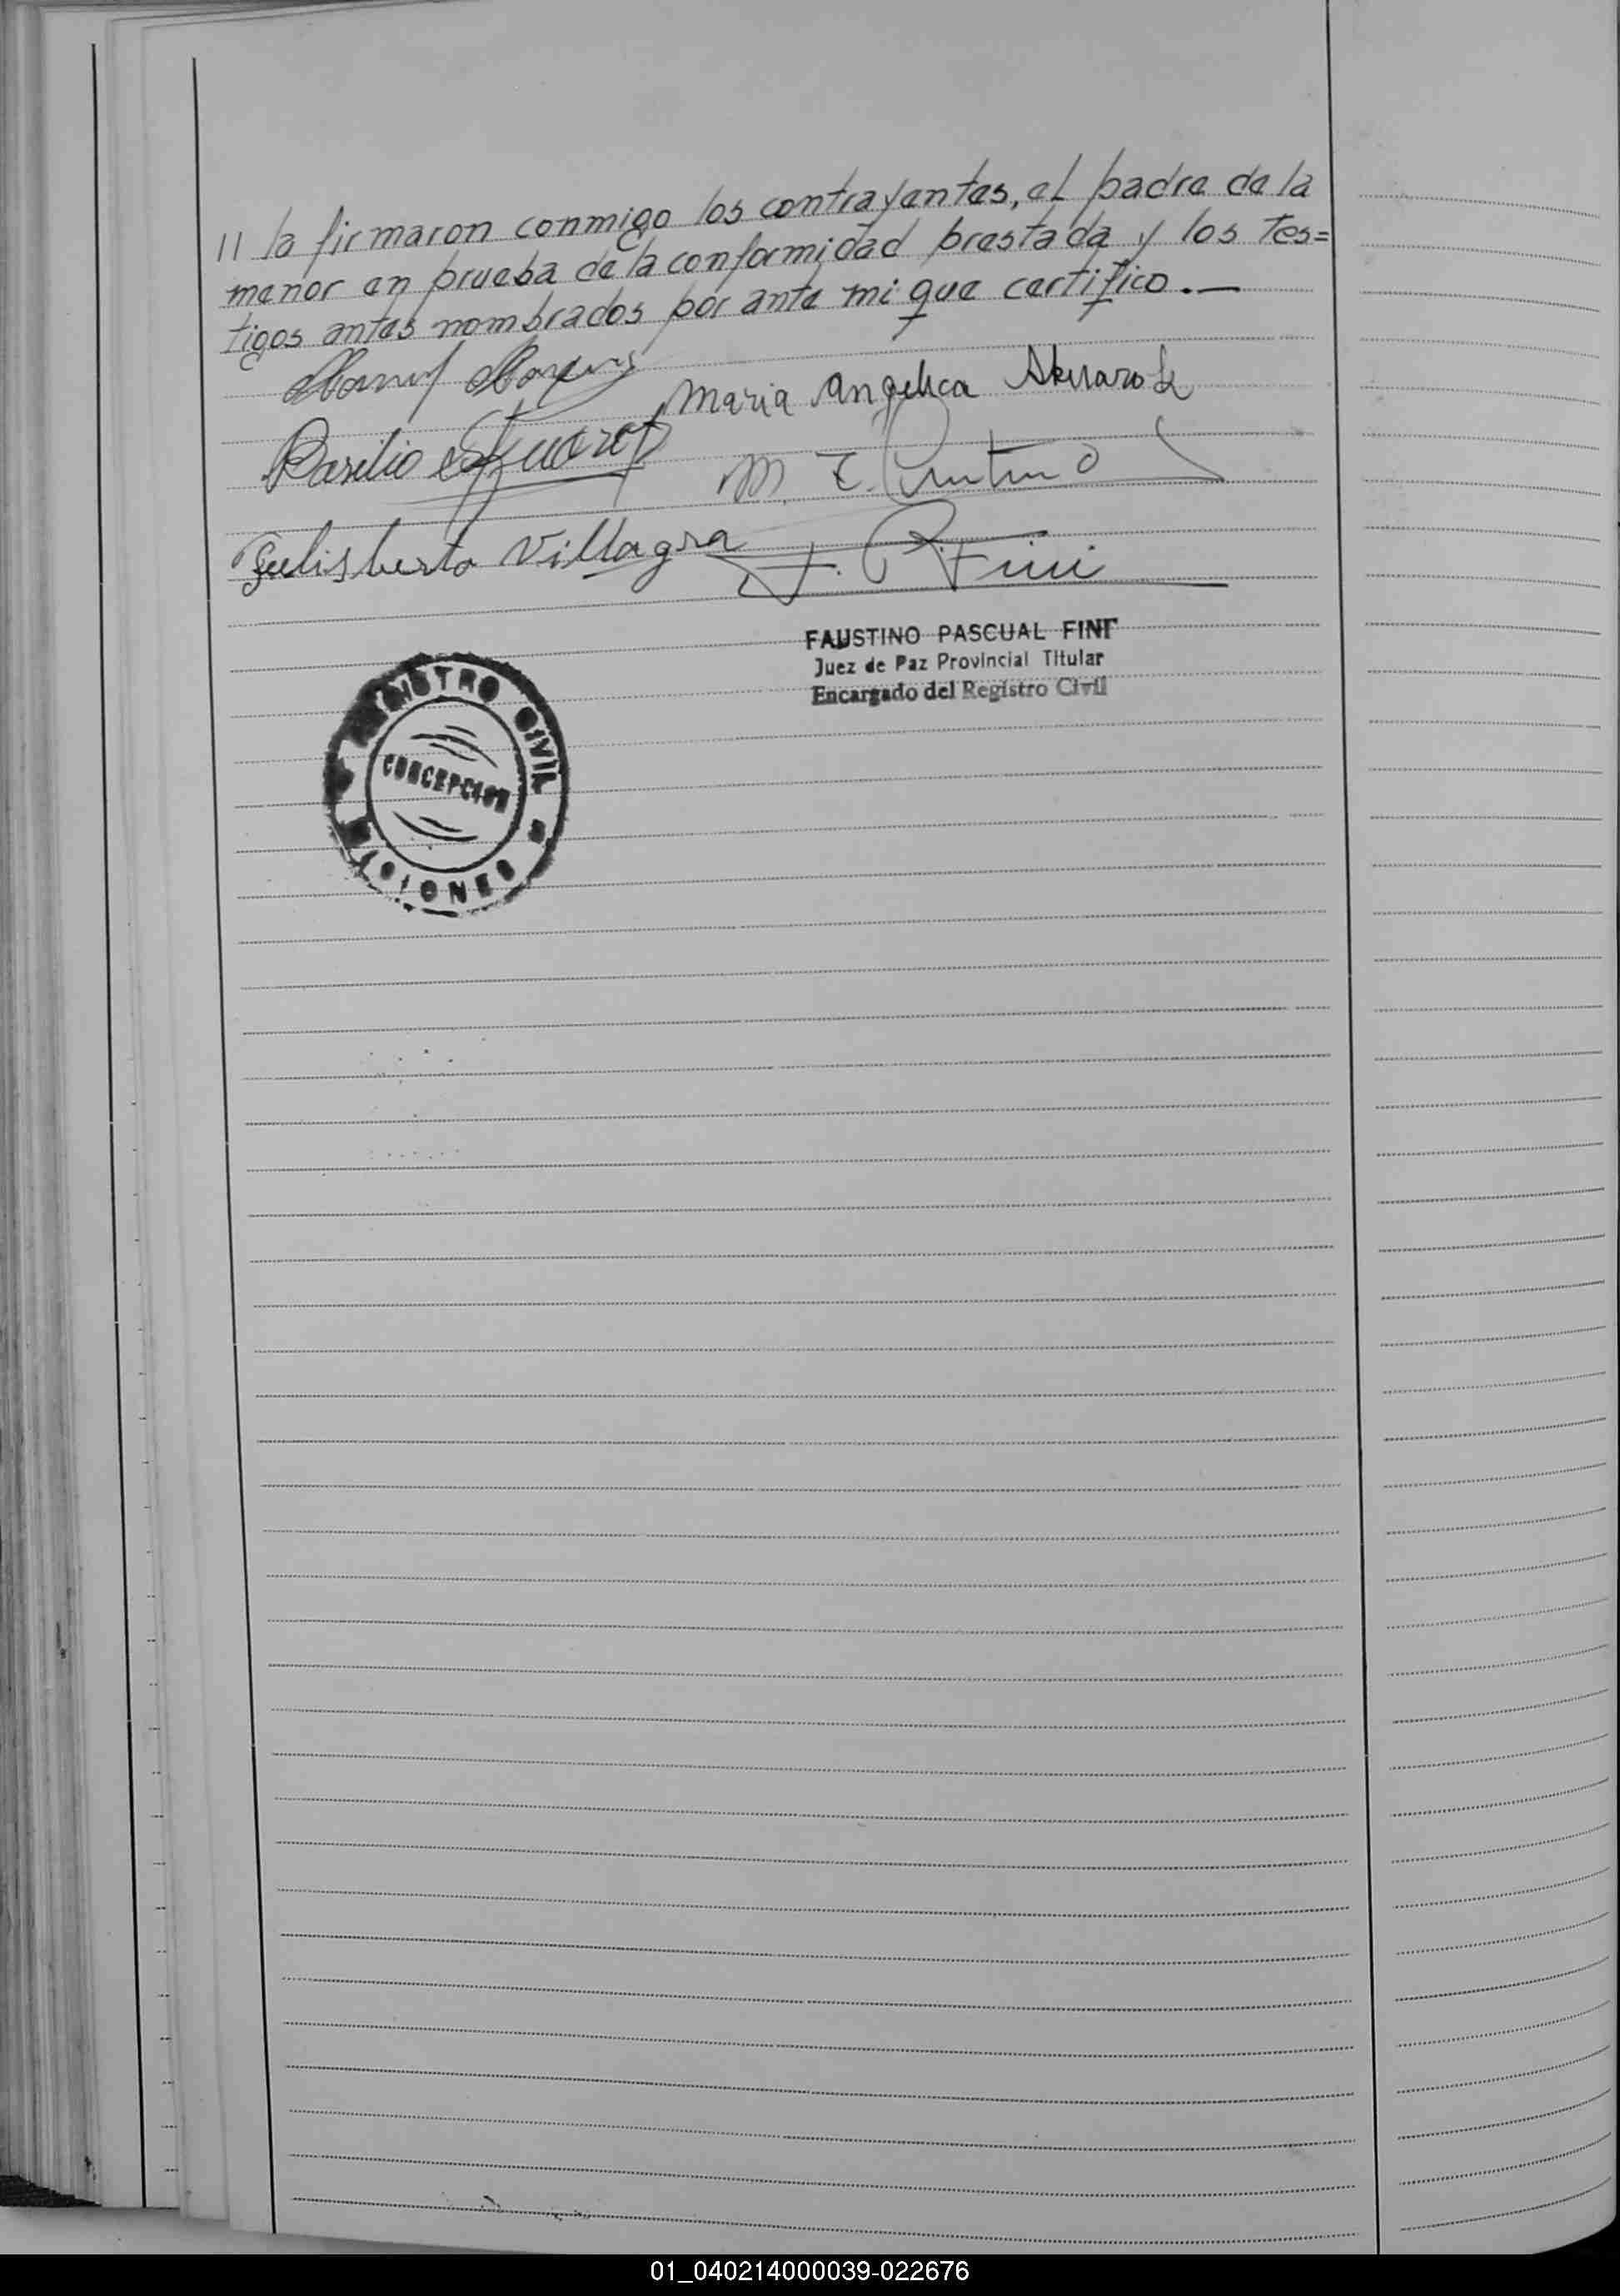 // la firmaron conmigo los contrayentes, el padre de la
menor en prueba de la conformidad prestada y los Tes=
tigos antes nombrados por ante mi que certifico.—
Maria Angelica
Basilio
M.
Felisberto Villagra F. P. Fini
FAUSTINO PASCUAL FINI
Juez de Paz Provincial Titular
Encargado del Registro Civil
REGISTRO CIVIL
CONCEPCION
MISIONES
01_040214000039-022676